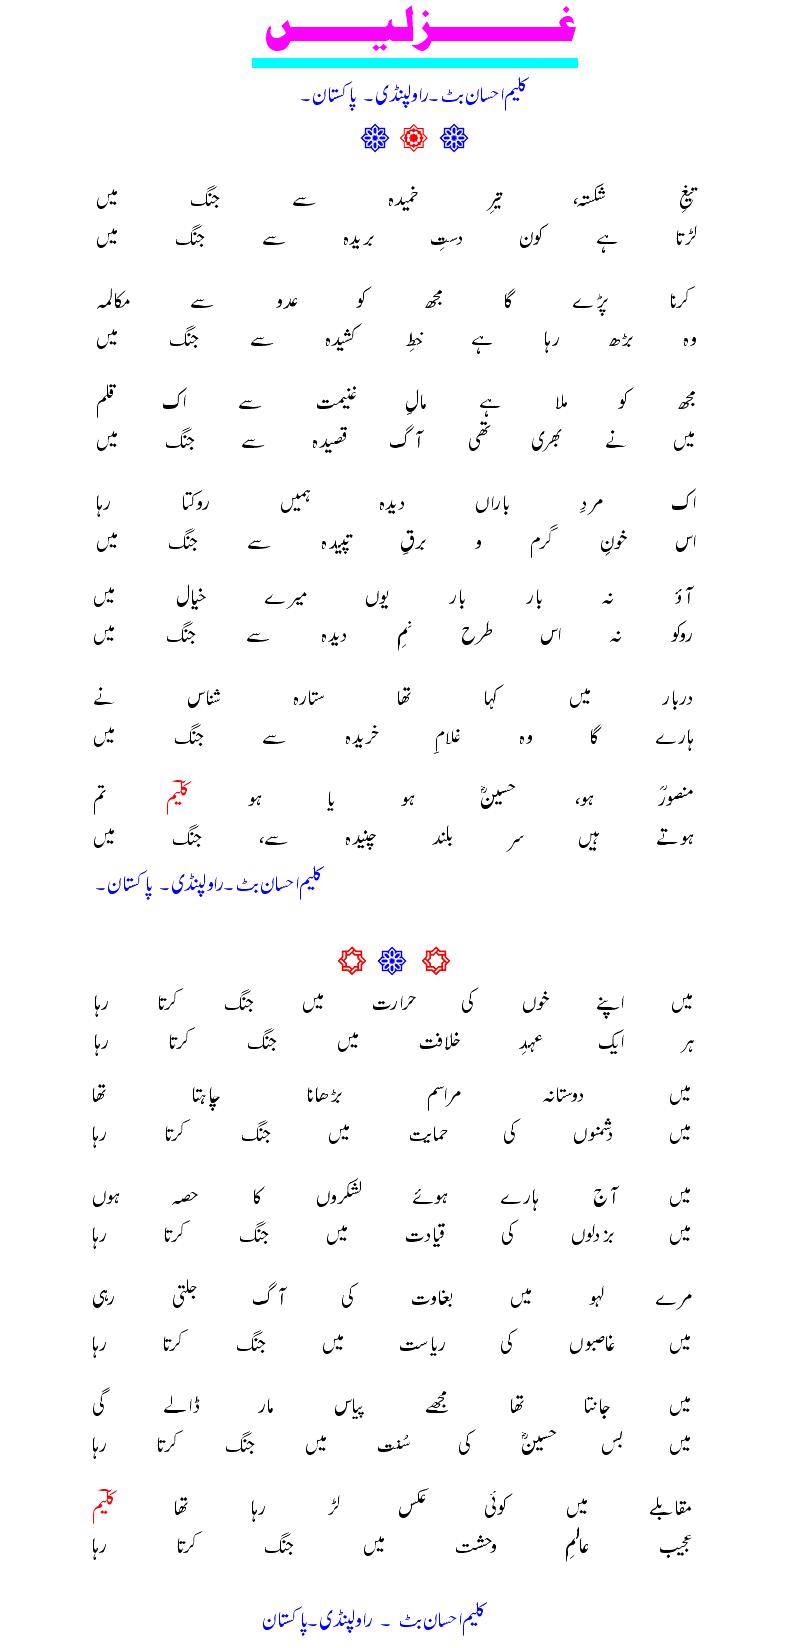 غزلیں
کلیم احسان بٹ۔راولپنڈی۔ پاکستان۔
تیغِ شکستہ، تیرِ خمیدہ سے جنگ میں
لڑتا ہے کون دستِ بریدہ سے جنگ میں
کرنا پڑے گا مجھ کو عدو سے مکالمہ
وہ بڑھ رہا ہے خطِ کشیدہ سے جنگ میں
مجھ کو ملا ہے مالِ غنیمت سے اک قلم
میں نے بھری تھی آگ قصیدہ سے جنگ میں
اک مردِ باراں دیدہ ہمیں روکتا رہا
اس خونِ گرم و برقِ تپیدہ سے جنگ میں
آؤ نہ بار بار یوں میرے خیال میں
روکو نہ اس طرح نمِ دیدہ سے جنگ میں
دربار میں کہا تھا ستارہ شناس نے
ہارے گا وہ غلامِ خریدہ سے جنگ میں
منصورؒ ہو، حسینؓ ہو یا ہو کلیمؔ تم
ہوتے ہیں سر بلند چنیدہ سے، جنگ میں
کلیم احسان بٹ۔راولپنڈی۔ پاکستان۔
میں اپنے خوں کی حرارت میں جنگ کرتا رہا
ہر ایک عہدِ خلافت میں جنگ کرتا رہا
میں دوستانہ مراسم بڑھانا چاہتا تھا
میں دشمنوں کی حمایت میں جنگ کرتا رہا
میں آج ہارے ہوئے لشکروں کا حصہ ہوں
میں بزدلوں کی قیادت میں جنگ کرتا رہا
مرے لہو میں بغاوت کی آگ جلتی رہی
میں غاصبوں کی ریاست میں جنگ کرتا رہا
میں جانتا تھا مجھے پیاس مار ڈالے گی
میں بس حسینؓ کی سُنت میں جنگ کرتا رہا
مقابلے میں کوئی عکس لڑ رہا تھا کلیمؔ
عجیب عالمِ وحشت میں جنگ کرتا رہا
کلیم احسان بٹ ۔ راولپنڈی۔پاکستان